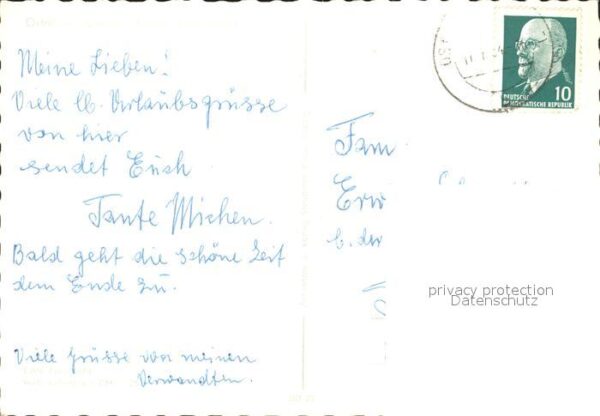 Meine Lieben!
Viele lb. Urlaubsgrüsse
von hier
sendet Euch
Tante Michen.
Bald geht die schöne Zeit
dem Ende zu.
Viele Grüsse von meinen
Verwandten.
10
DEUTSCHE
DEMOKRATISCHE REPUBLIK
Fam
Erw
b. der
privacy protection
Datenschutz